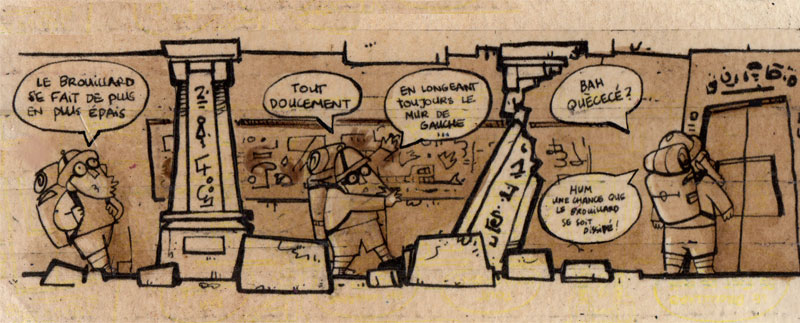 LE BROUILLARD
SE FAIT DE PLUS
EN PLUS ÉPAIS
TOUT
DOUCEMENT
EN LONGEANT
TOUJOURS LE
MUR DE
GAUCHE
...
BAH
QUÉCECÉ ?
HUM
UNE CHANCE QUE
LE BROUILLARD
SE SOIT
DISSIPÉ !